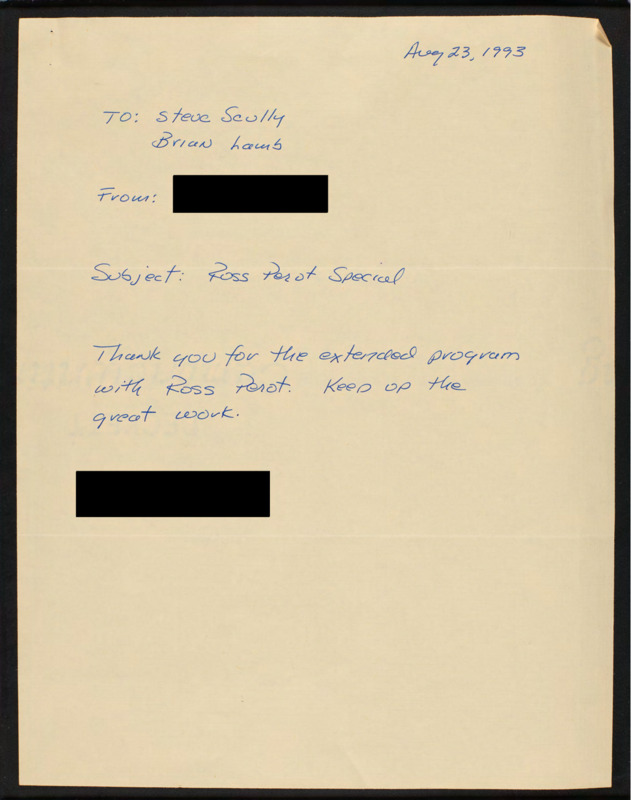 Aug 23, 1993
TO: Steve Scully
Brian Lamb
From:
Subject: Ross Perot Special
Thank you for the extended program
with Ross Perot. Keep up the
great work.